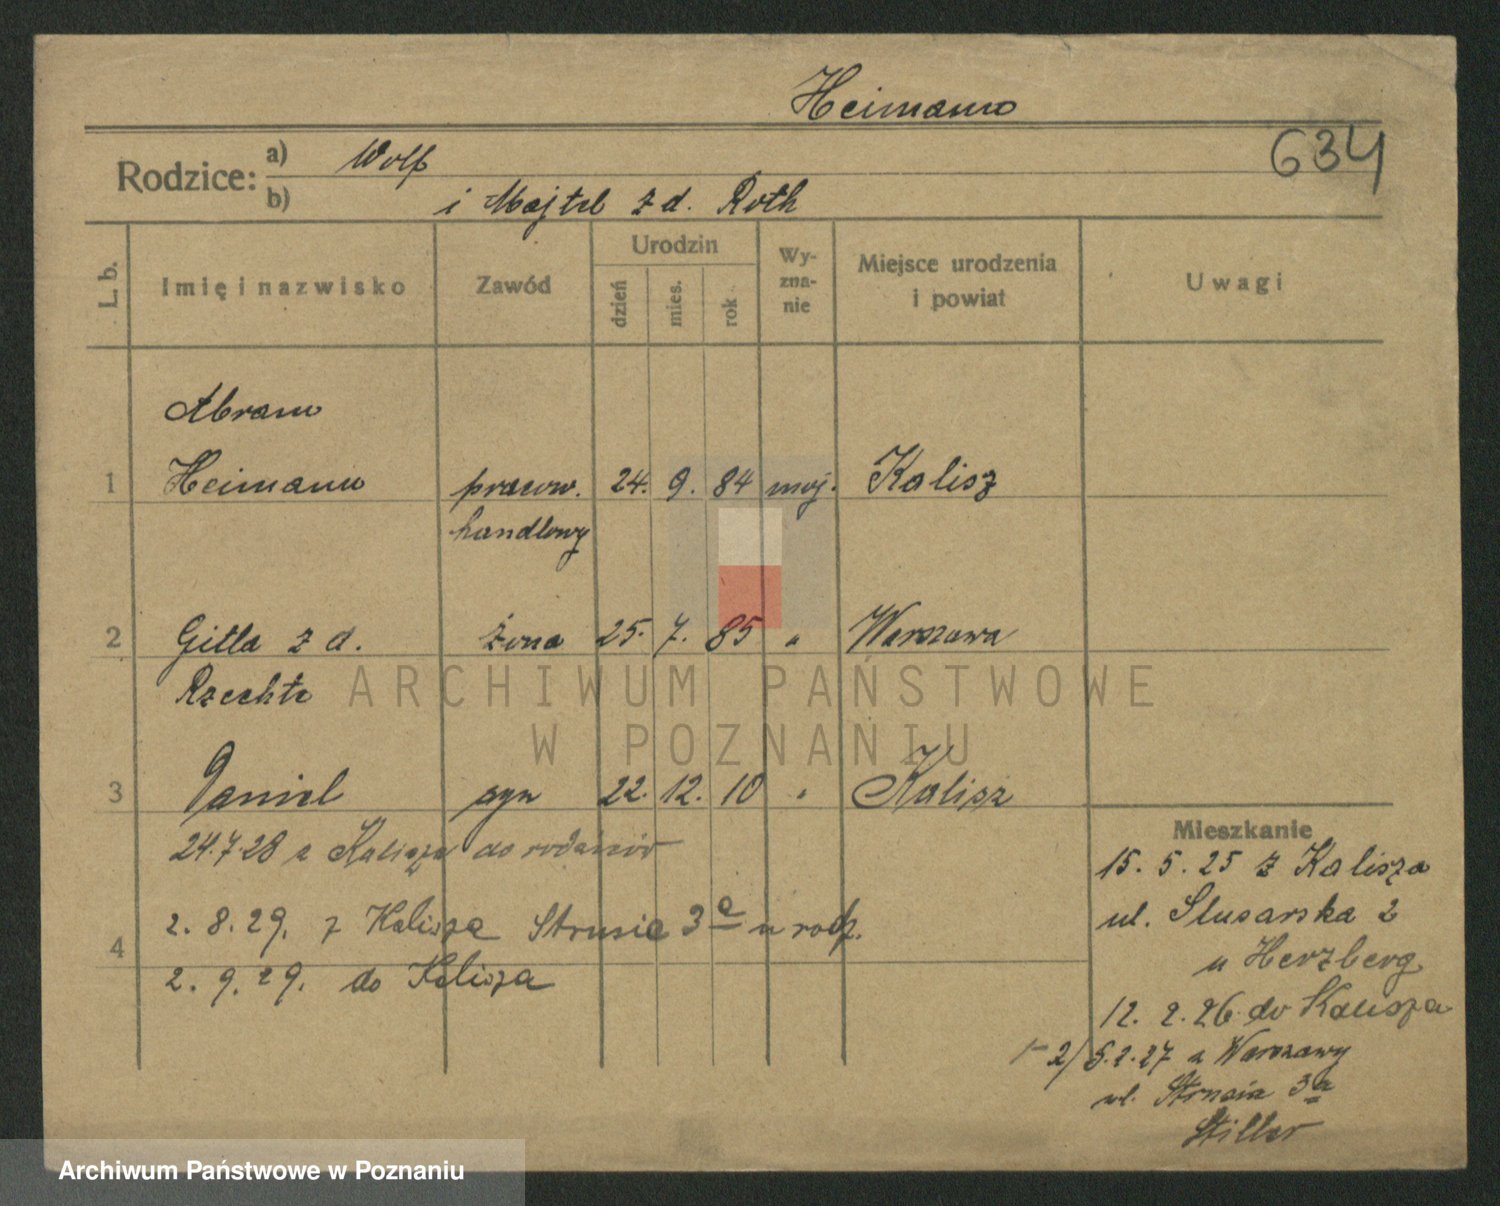 Heimann
634
Rodzice:
a) Wolf
b) i Majtel z d. Roth
L. b.
Imię i nazwisko
Zawód
Urodzin
dzień
mies.
rok
Wy-
zna-
nie
Miejsce urodzenia
i powiat
Uwagi
Abram
1 Heimann pracow. 24. 9. 84 mojż. Kalisz
handlowy
2 Gitla z d. żona 25. 7. 85 " Warszawa
Rzechte
3 Daniel syn 22. 12. 10 " Kalisz
24.7.28 z Kalisza do rodziców
2. 8. 29. z Kalisza Strusia 3a u rodz.
4
2. 9. 29. do Kalisza
Mieszkanie
15. 5. 25 z Kalisza
ul. Slusarska 2
u Herzberg
12. 2. 26 do Kalisza
1-2/ 5.2.27 z Warszawy
ul. Strusia 3a
Stiller
ARCHIWUM PAŃSTWOWE
W POZNANIU
Archiwum Państwowe w Poznaniu